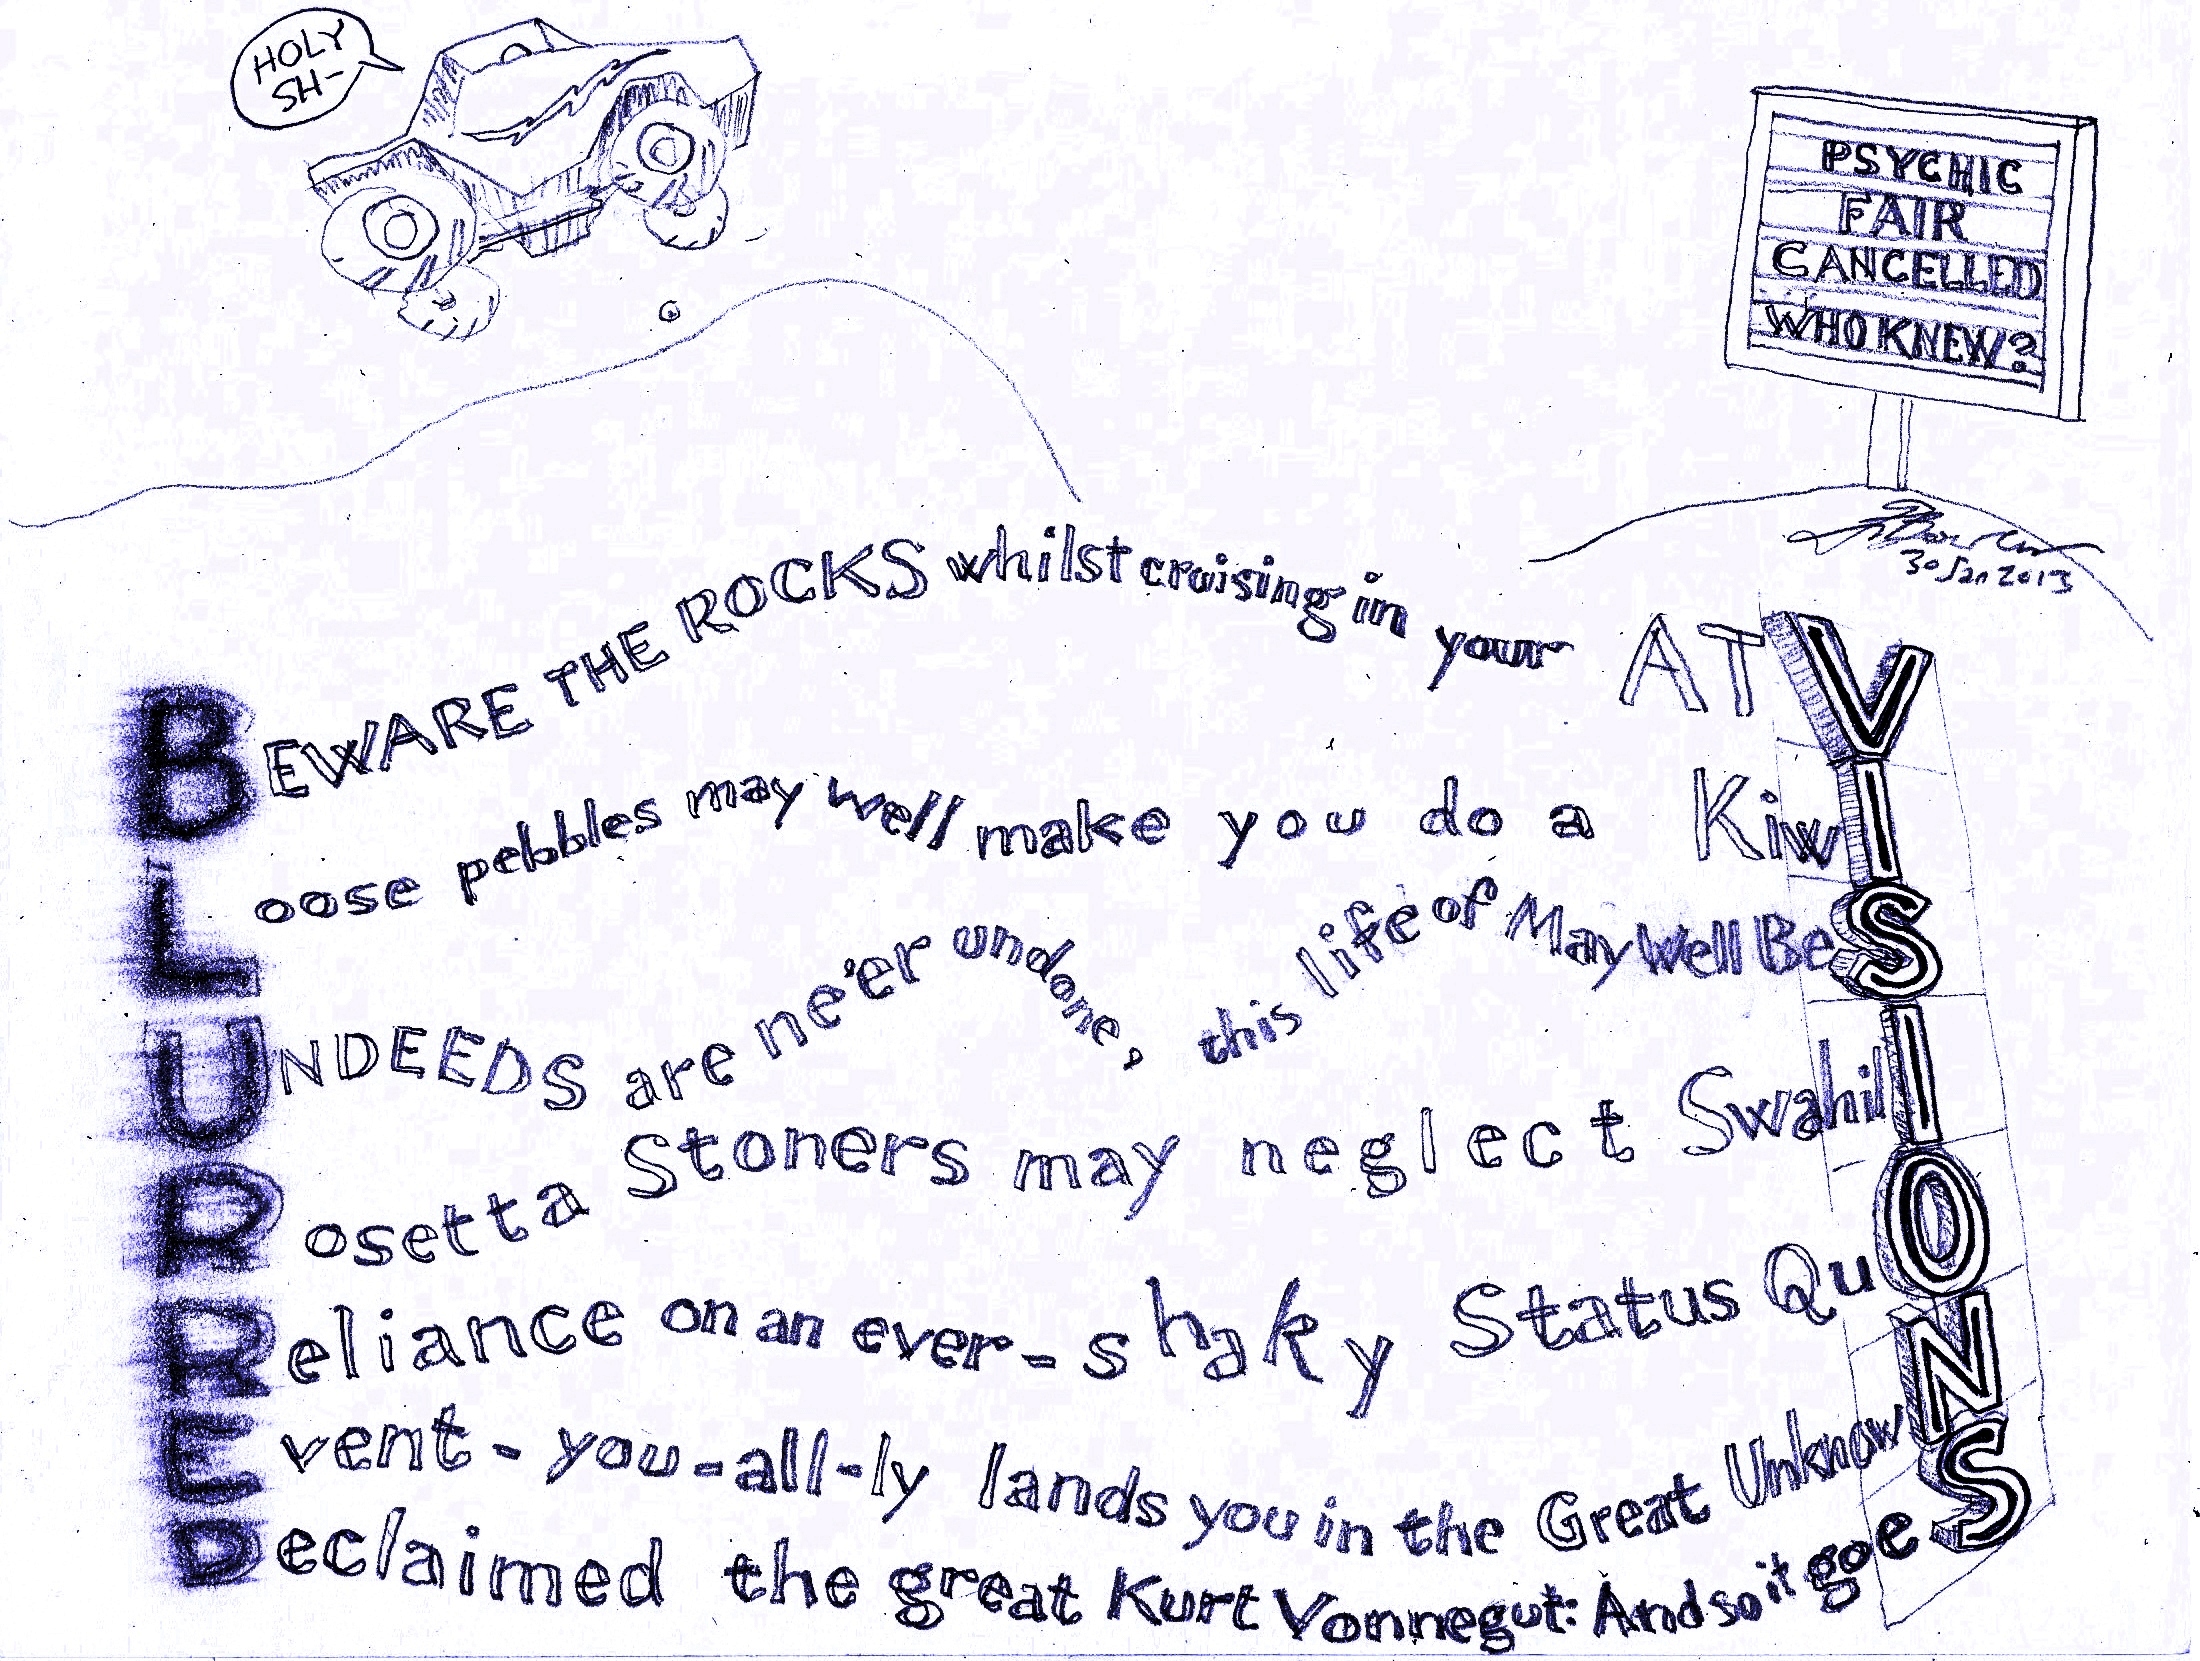 HOLY
SH-
PSYCHIC
FAIR
CANCELLED
WHO KNEW?
30 Jan 2013
BEWARE THE ROCKS whilst cruising in your ATV
Loose pebbles may well make you do a KiwI
UNDEEDS are ne'er undone, this life of May Well BeS
Rosetta Stoners may neglect SwahilI
Reliance on an ever-shaky Status QuO
Event-you-all-ly lands you in the Great UnknowN
Declaimed the great Kurt Vonnegut: And so it goeS